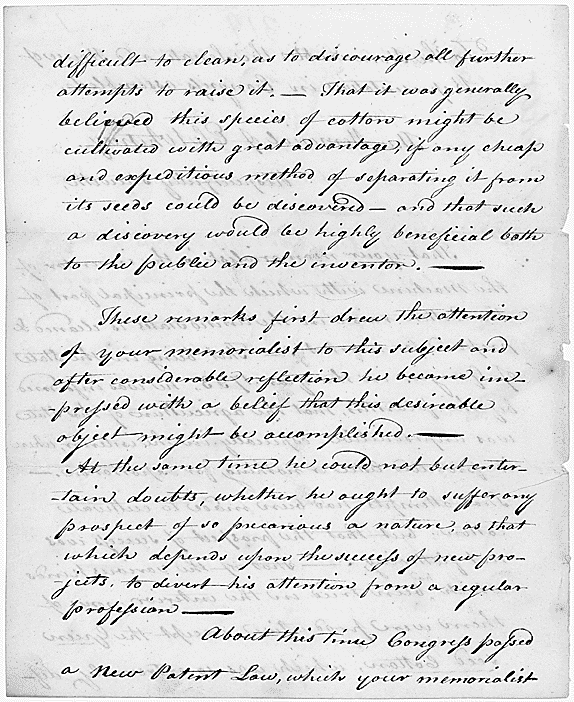 difficult to clean, as to discourage all further
attempts to raise it. — That it was generally
believed this species of cotton might be
cultivated with great advantage, if any cheap
and expeditious method of separating it from
its seeds could be discovered — and that such
a discovery would be highly beneficial both
to the public and the inventor. —
These remarks first drew the attention
of your memorialist to this subject and
after considerable reflection he became im-
-pressed with a belief that this desireable
object might be accomplished. —
At the same time he could not but enter-
-tain doubts, whether he ought to suffer any
prospect of so precarious a nature, as that
which depends upon the success of new pro-
-jects, to divert his attention from a regular
profession —
About this time Congress passed
a New Patent Law, which your memorialist